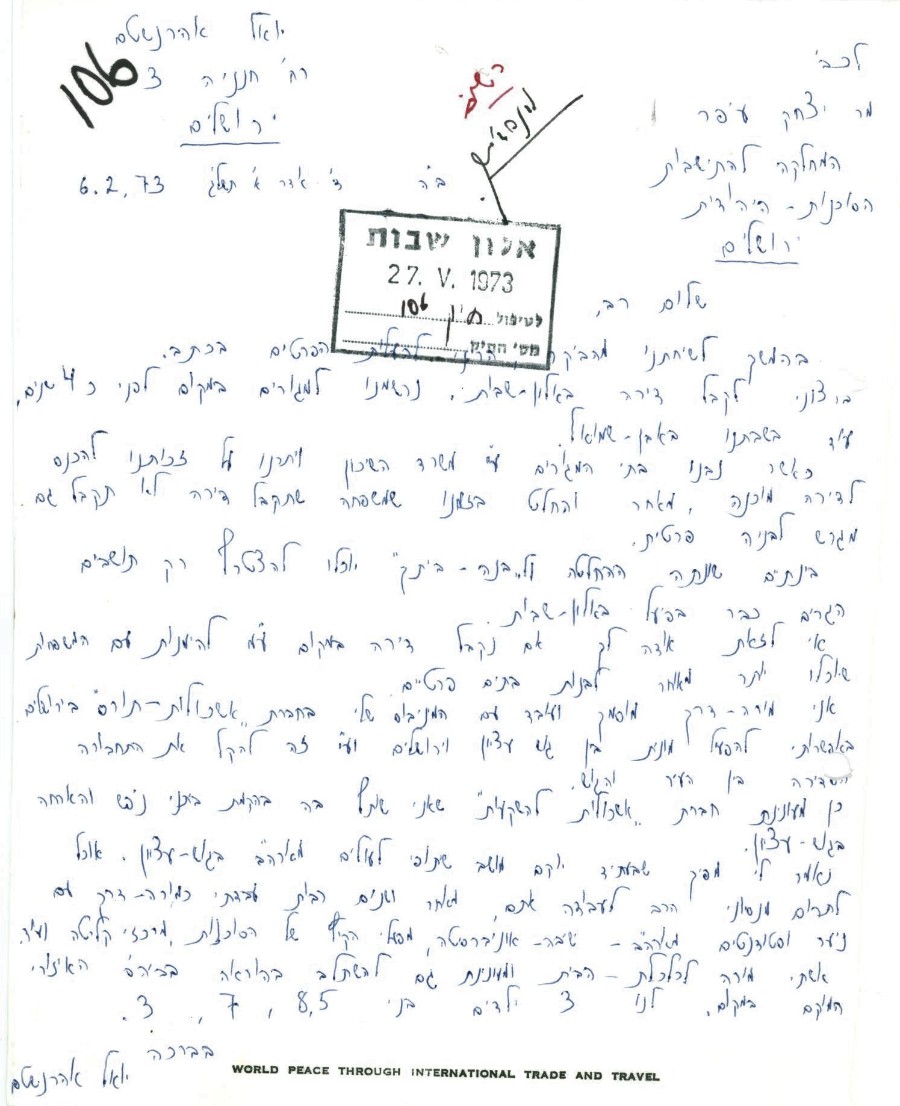 יואל אהרנשטם
רח' חנניה 3
ירושלים
106
לכב'
מר יצחק עיפר
המחלקה להתישבות
הסוכנות - היהודית
ירושלים
ב"ה ד' אדר א' תשל"ג 6.2.73
אלון שבות
27. V. 1973
לטיפול תיק 106
מס' התיק
שלום רב,
בהמשך לשיחתנו מהבקר להעלות הפרטים בכתב.
ברצוני לקבל דירה באלון-שבות. נרשמנו למגורים במקום לפני כ 4 שנים,
עוד בשבתנו באבן-שמואל.
כאשר נבנו בתי המגורים ע"י משרד השיכון ויתרנו על זכותנו להכנס
לדירה מוכנה, מאחר והחלט בזמנו שמשפחה שתקבל דירה לא תקבל גם
מגרש לבניה פרטית.
בינתים שונתה ההחלטה ול"בנה - ביתך" יוכלו להצטרף רק תושבים
הגרים כבר בפועל באלון-שבות.
אי לזאת אודה לך אם נקבל דירה במקום ע"מ להימנות עם המשפחות
שיוכלו יותר מאוחר לבנות בתים פרטיים.
אני מורה-דרך מוסמך ועובד עם המניבוס שלי בחברת "אשכולות-תורס" בירושלים
באפשרותי להפעיל מונית בין גוש עציון וירושלים וע"י זה להקל את התחבורה
הסדירה בין העיר והגוש.
כן מעונינת חברת "אשכולות להשקעות" שאני שותף בה בהקמת בית נופש והארחה
בגוש-עציון.
נאמר לי שבעתיד יוקם מושב שתופי לעולים מארה"ב בגוש-עציון. אוכל
לתרום מנסיוני הרב לעבודה אתם, מאחר ושנים רבות עבדתי כמורה-דרך עם
נוער וסטודנטים מארה"ב - ישיבה-אוניברסטה, מפעלי הקיץ של הסוכנות, מרכזי קליטה ועוד.
אשתי מורה לכלכלת-הבית ומעונינת גם להשתלב בהוראה בביה"ס האיזורי
המוקם במקום. לנו 3 ילדים בני 8.5, 7, 3.
בברכה
יואל אהרנשטם
WORLD PEACE THROUGH INTERNATIONAL TRADE AND TRAVEL